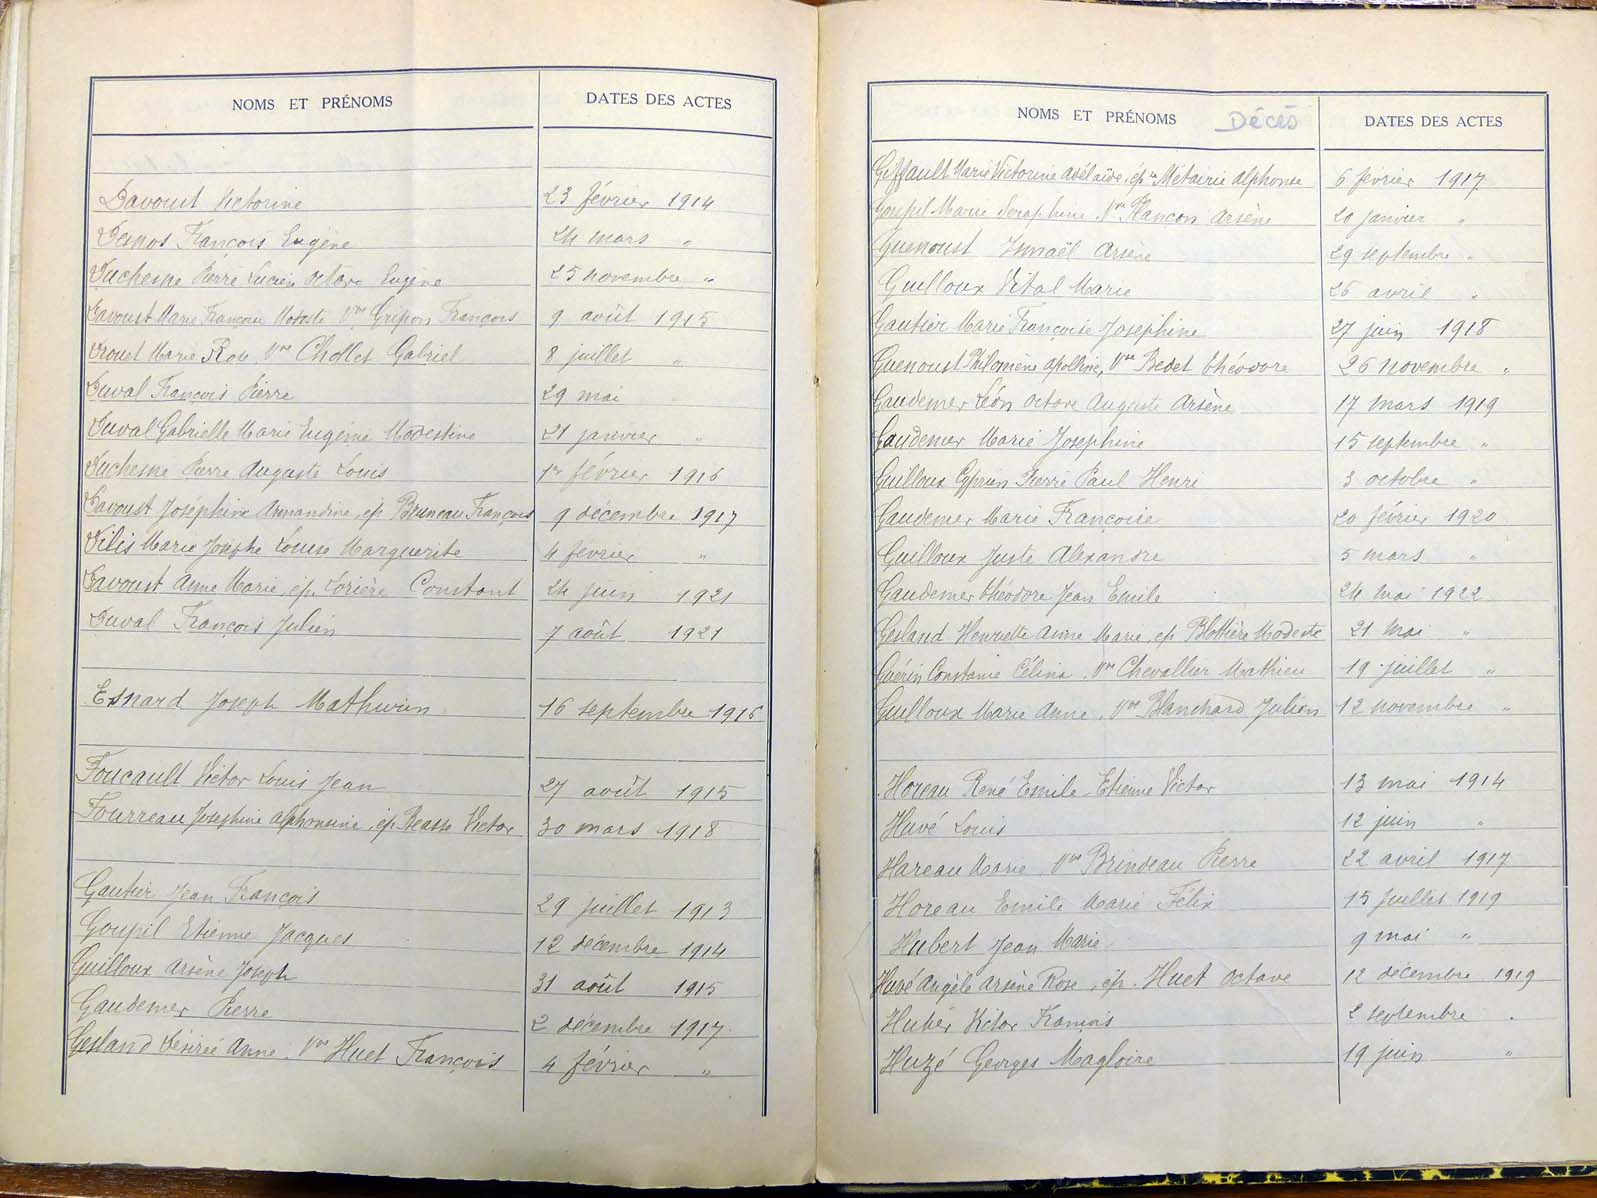 NOMS ET PRÉNOMS DATES DES ACTES
Davoust Victorine 23 février 1914
Demos François Eugène 24 mars "
Duchesne Pierre Lucien Octave Eugène 25 novembre "
Davoust Marie Françoise Modeste Vve Gripon François 9 août 1915
Drouet Marie Rose Vve Chollet Gabriel 8 juillet "
Duval François Pierre 29 mai "
Duval Gabrielle Marie Eugénie Modestine 21 janvier "
Duchesne Pierre Auguste Louis 1er février 1916
Davoust Joséphine Armandine, ép Bruneau François 9 décembre 1917
Dilis Marie Josèphe Louise Marguerite 4 février "
Davoust Anne Marie, ép. Lorière Constant 24 juin 1921
Duval François Julien 7 août 1921
Esnard Joseph Mathurin 16 septembre 1916
Foucault Victor Louis Jean 27 août 1915
Fourreau Joséphine Alphonsine, ép Beasse Victor 30 mars 1918
Gautier Jean François 29 juillet 1913
Goupil Etienne Jacques 12 décembre 1914
Guilloux Arsène Joseph 31 août 1915
Gaudemer Pierre 2 décembre 1917
Gesland Désirée Anne, Vve Huet François 4 février "
NOMS ET PRÉNOMS Décès DATES DES ACTES
Giffault Marie Victorine Adélaïde, épse Métairie Alphonse 6 février 1917
Goupil Marie Séraphine, Vve Plançon Arsène 20 janvier "
Guenoust Ismaël Arsène 29 septembre "
Guilloux Vital Marie 26 avril "
Gautier Marie Françoise Joséphine 27 juin 1918
Guenoust Philomène Apolline, Vve Bedet Théodore 26 novembre "
Gaudemer Léon Octave Auguste Arsène 17 mars 1919
Gaudemer Marie Joséphine 15 septembre "
Guilloux Cyprien Pierre Paul Henri 3 octobre "
Gaudemer Marie Françoise 20 février 1920
Guilloux Juste Alexandre 5 mars "
Gaudemer Théodore Jean Emile 24 mai 1922
Gesland Henriette Anne Marie, ép Blottière Modeste 21 mai "
Guérin Constance Célina, Vve Chevallier Mathieu 19 juillet "
Guilloux Marie Anne, Vve Blanchard Julien 12 novembre "
Horeau René Emile Etienne Victor 13 mai 1914
Huvé Louis 12 juin "
Hareau Marie, Vve Brindeau Pierre 22 avril 1917
Horeau Emile Marie Félix 15 juillet 1919
Hubert Jean Marie 9 mai "
Huvé Angèle Arsène Rose, ép. Huet Octave 12 décembre 1919
Hubér Victor François 2 septembre "
Huzé Georges Magloire 19 juin "